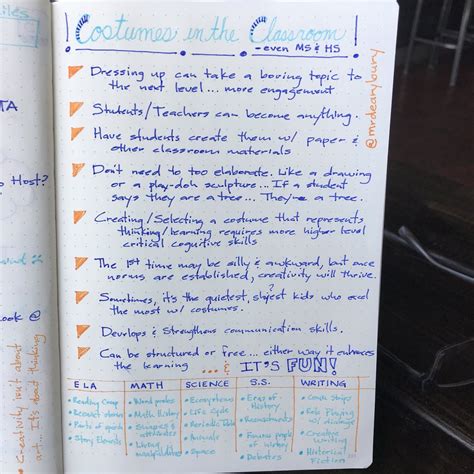 Costumes in the Classroom
- even MS & HS
Dressing up can take a boring topic to
the next level... more engagement
Students/Teachers can become anything.
Have students create them w/ paper &
other classroom materials
Don't need to too elaborate. Like a drawing
or a play-doh sculpture... If a student
says they are a tree... They're a tree.
Creating/Selecting a costume that represents
thinking/learning requires more higher level
critical cognitive skills
The 1st time may be silly & awkward, but once
norms are established, creativity will thrive.
Sometimes, it's the quietest, shyest kids who excel
the most w/ costumes.
Develops & Strengthens communication skills.
Can be structured or free... either way it enhances
the learning ...& IT'S FUN!
@mrdearybury
ELA
Reading Group
Recreate stories
Parts of speech
Story Elements
MATH
Word probs
Math History
Shapes &
attributes
Living
manipulatives
SCIENCE
Ecosystems
Life Cycle
Periodic Table
Animals
Space
S.S.
Eras of
History
Reenactments
Famous people
of history
Debates
WRITING
Comic Strips
Role Playing
w/ dialogue
Creative
Writing
Historical
Fiction
TA
Host?
Look @
Creativity isn't about
art... It's about thinking